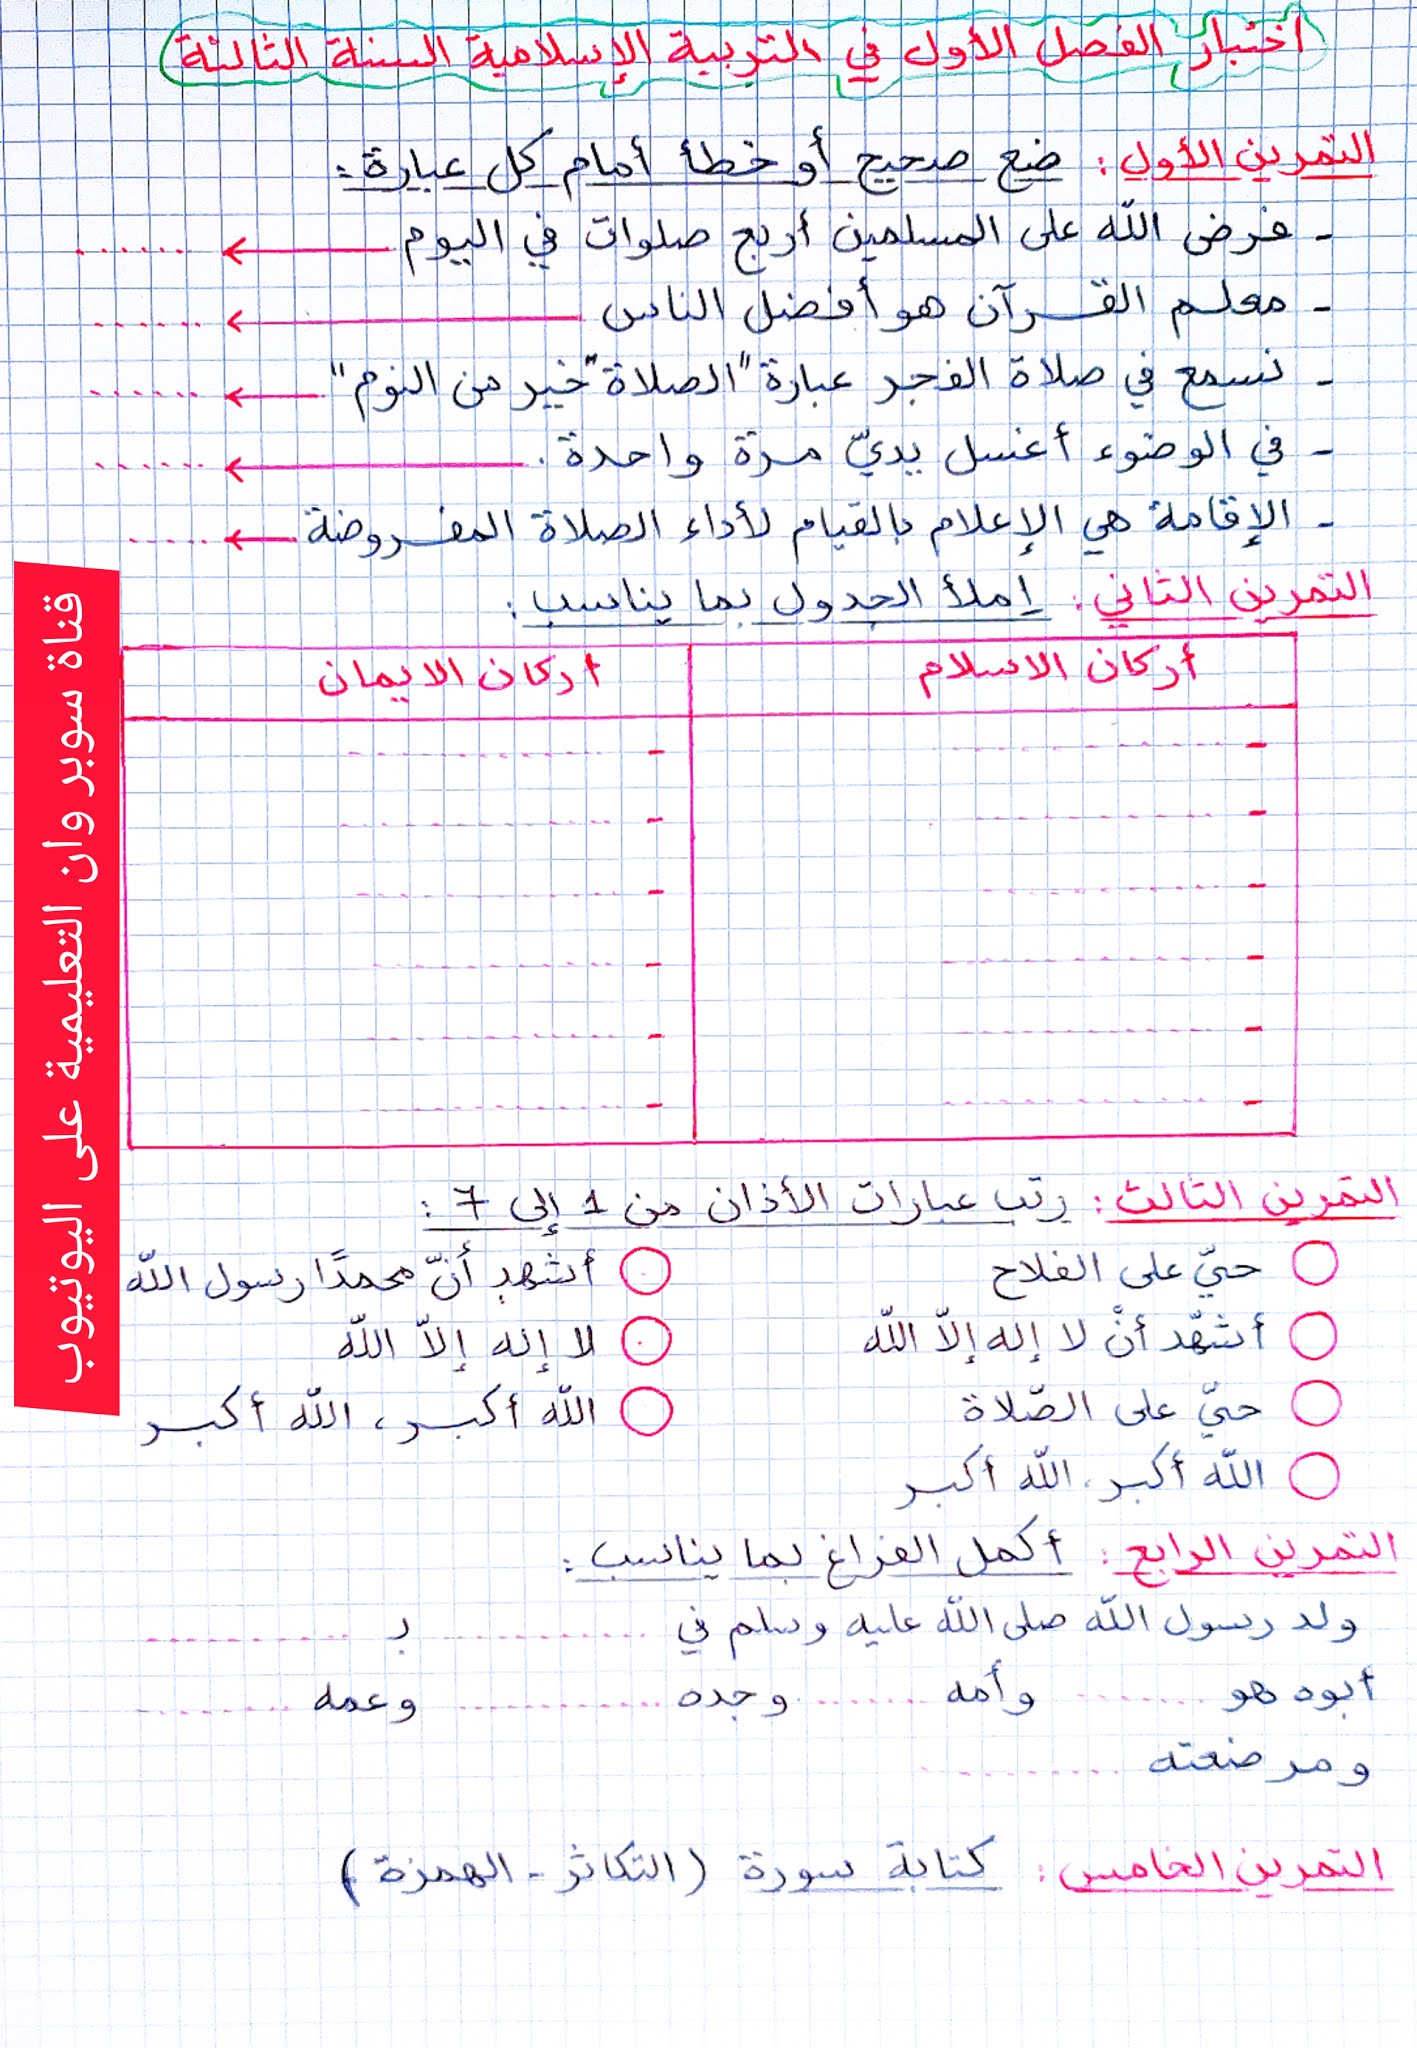 اختبار الفصل الأول في التربية الإسلامية السنة الثالثة
التمرين الأول: ضع صحيح أو خطأ أمام كل عبارة:
- فرض الله على المسلمين أربع صلوات في اليوم ← ......
- معلم القرآن هو أفضل الناس ← ......
- نسمع في صلاة الفجر عبارة "الصلاة "خير من النوم" ← ......
- في الوضوء أغسل يديّ مرة واحدة. ← ......
- الإقامة هي الإعلام بالقيام لأداء الصلاة المفروضة ← .....
التمرين الثاني: إملأ الجدول بما يناسب:
أركان الاسلام اركان الايمان
- ............ - ............
- ............ - ............
- ............ - ............
- ............ - ............
- ............ - ............
- ............ - ............
التمرين الثالث: رتب عبارات الأذان من 1 إلى 7:
حيّ على الفلاح أشهد أنّ محمدًا رسول الله
أشهد أنْ لا إله إلاّ الله لا إله إلاّ الله
حيّ على الصّلاة الله أكبر، الله أكبر
الله أكبر، الله أكبر
التمرين الرابع: أكمل الفراغ بما يناسب:
ولد رسول الله صلى الله عليه وسلم في ............ بـ ............
أبوه هو ........ وأمه ........ وجده ............ وعمه ............
ومرضعته ............
التمرين الخامس: كتابة سورة (التكاثر - الهمزة)
قناة سوبر وان التعليمية على اليوتيوب